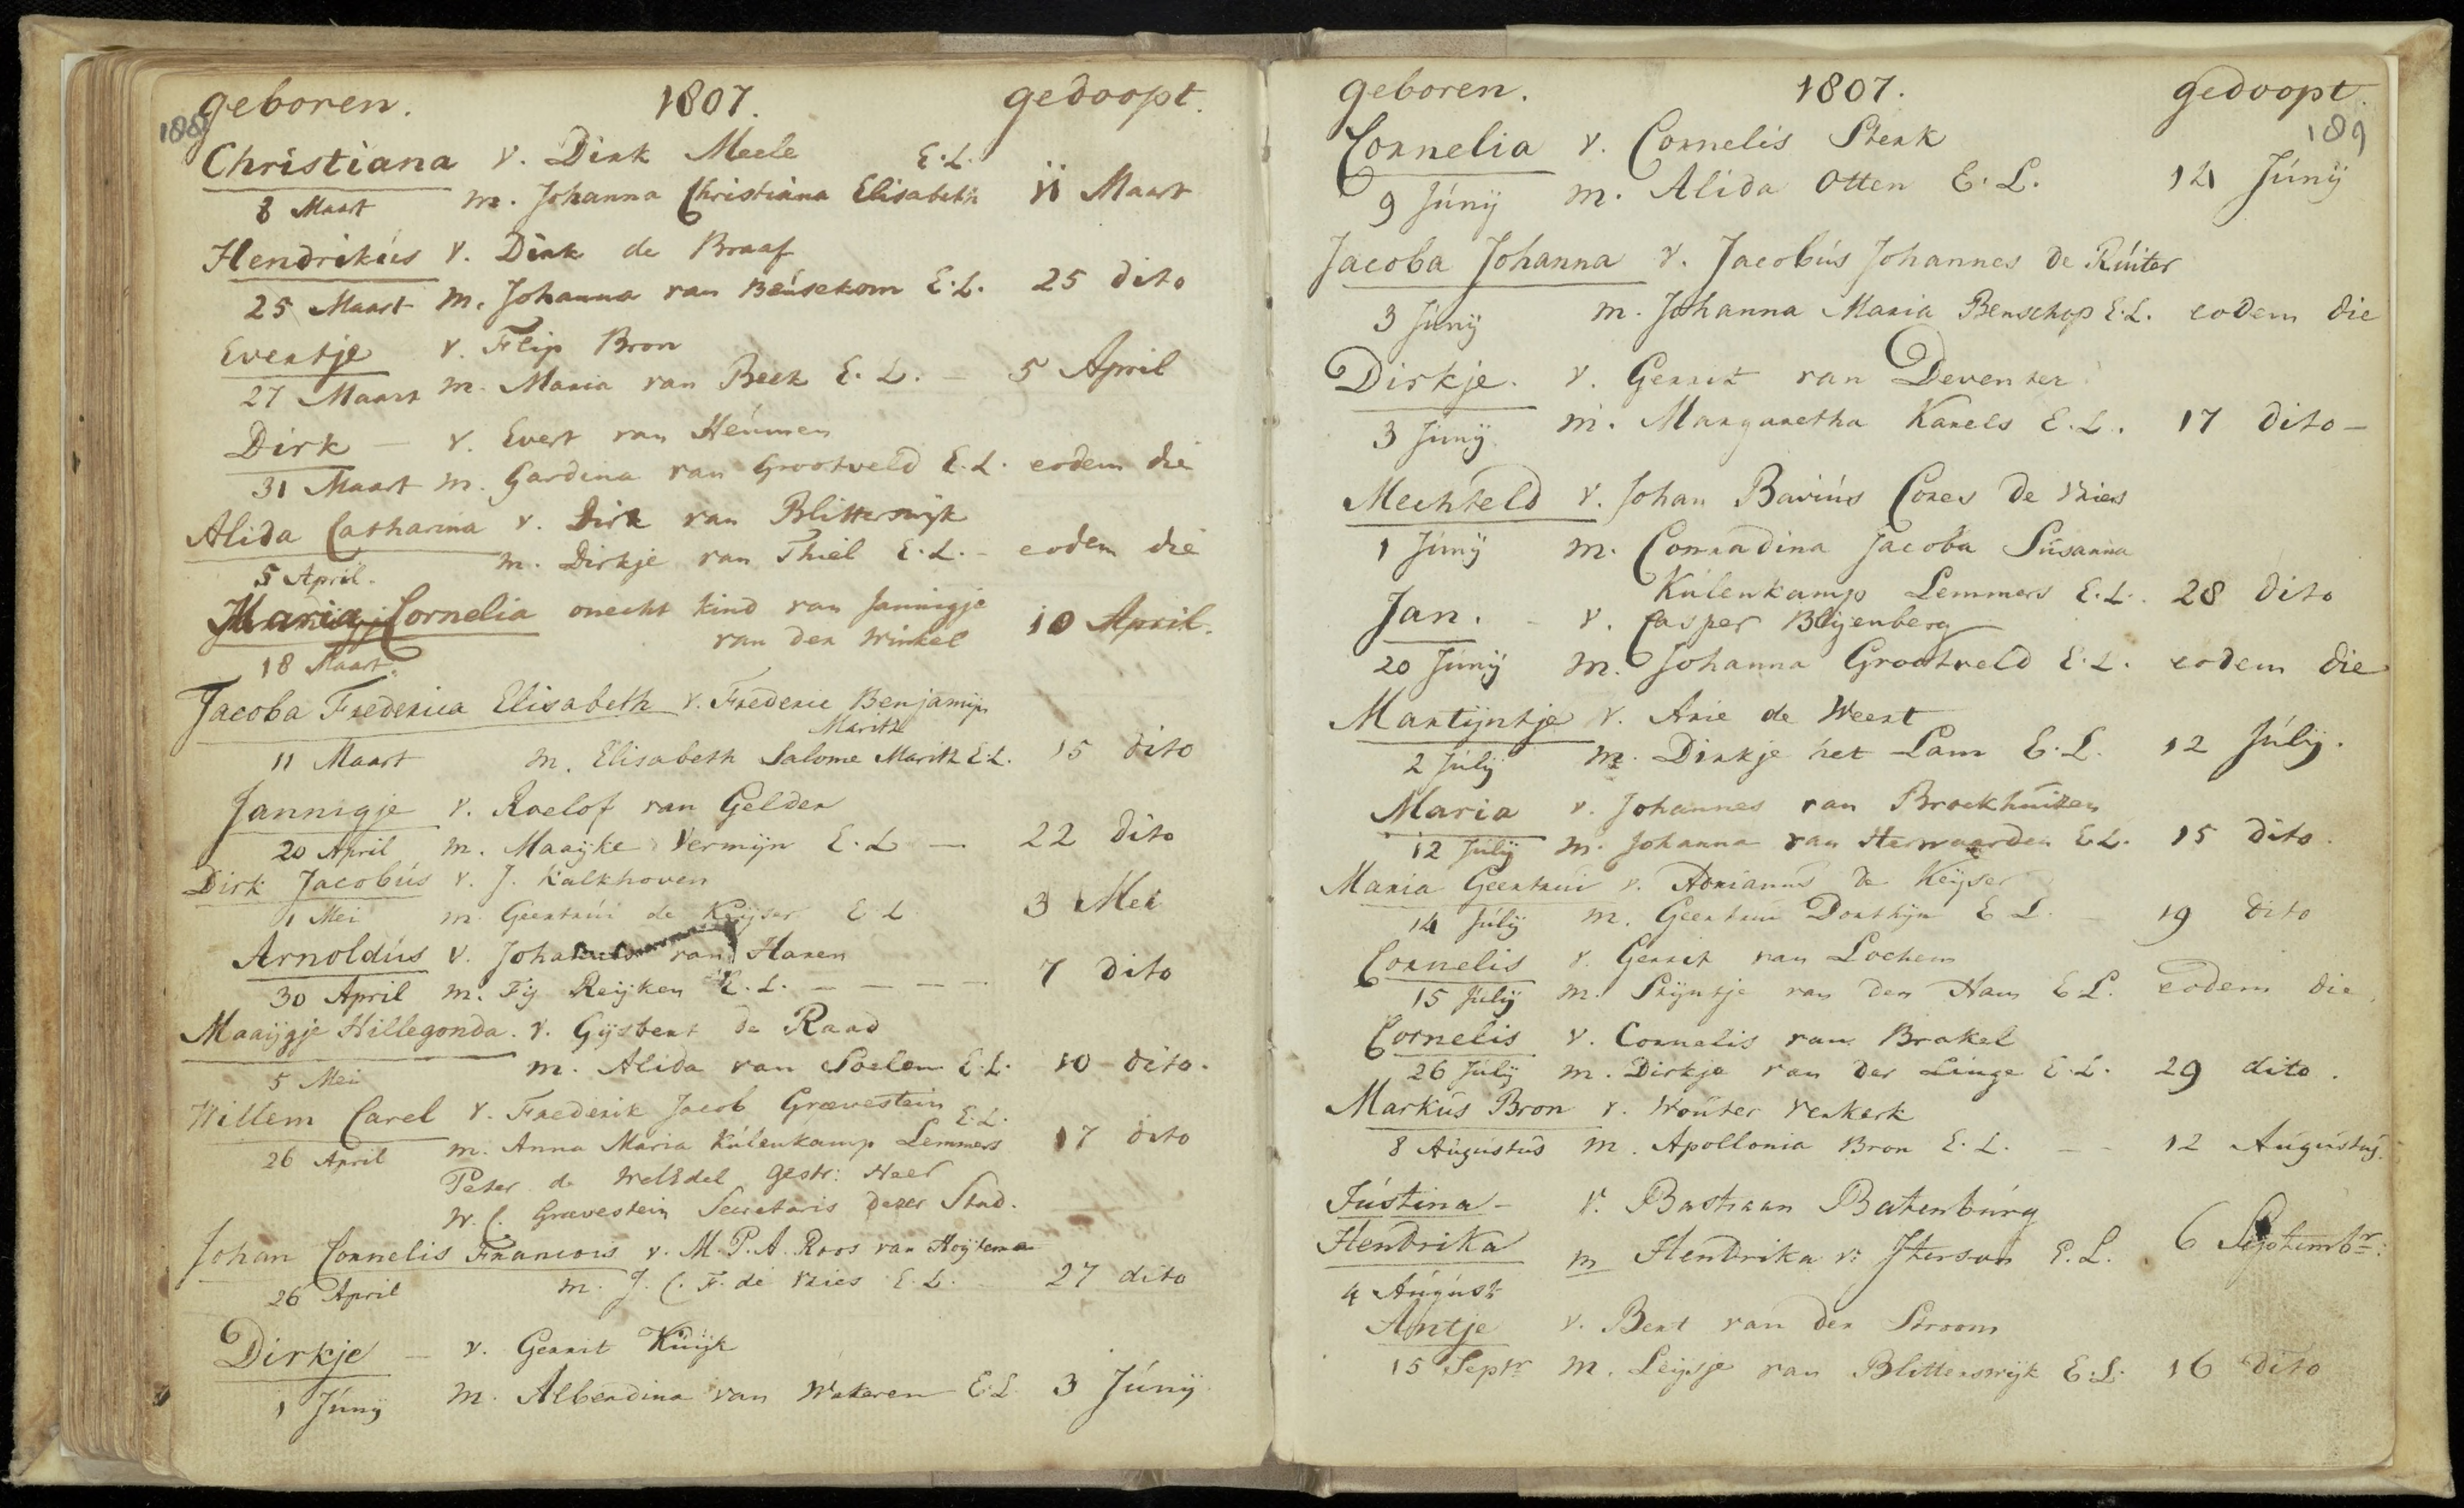 geboren. 1807. gedoopt.
188
Christiana v. Dirk Meele E.L.
8 Maart m. Johanna Christiana Elisabeth 11 Maart
Hendrikús v. Dirk de Braaf
25 Maart m. Johanna van Beúsekom E.L. 25 dito
Evertje v. Flip Bron
27 Maart m. Maria van Beek E.L. — 5 April
Dirk — v. Evert van Heúmen
31 Maart m. Gardina van Grootveld E.L. eodem die
Alida Catharina v. Dirk van Blitterswijk
5 April. m. Dirkje van Thiel E.L. - eodem die
Maria Cornelia onecht kind van Jannigje
18 Maart. van der Winkel 10 April.
Jacoba Frederica Elisabeth v. Frederic Benjamijn
Maritz
11 Maart m. Elisabeth Salome Maritz E.L. 15 dito
Jannigje v. Roelof van Gelder
20 April m. Maaijke Vermijn E.L — 22 dito
Dirk Jacobús v. J. Kalkhoven
1 Mei m. Geertrúi de Keijser E L 3 Mei
Arnoldús v. Johannes van Haren
30 April m. Fij Reijken E.L. — — — — 7 dito
Maaijgje Hillegonda. v. Gijsbert de Raad
5 Mei m. Alida van Soelen E.L. 10 dito.
Willem Carel v. Frederik Jacob Grævestein E.L.
26 April m. Anna Maria Kúlenkamp Lemmers 17 dito
Peter de WelEdel gestr: Heer
W. C. Grævestein Secretaris dezer Stad.
Johan Cornelis Francois v. M. P. A. Roos van Hoijtema
26 April m. J. C. F. de Vries E.L. 27 dito
Dirkje — v. Gerrit Kúijk
1 Júnij m. Alberdina van Wateren E.L. 3 Júnij
geboren. 1807. gedoopt.
189
Cornelia v. Cornelis Sterk
9 Júnij m. Alida Otten E.L. 14 Júnij
Jacoba Johanna v. Jacobús Johannes de Rúiter
3 Júnij m. Johanna Maria Benschop E.L. eodem die
Dirkje. v. Gerrit van Deventer
3 Júnij m. Margaretha Karels E.L. 17 dito —
Mechteld v. Johan Baviús Cores de Vries
1 Júnij m. Conradina Jacoba Súsanna
Kúlenkamp Lemmers E.L. 28 dito
Jan. - v. Casper Blijenberg
20 Júnij m. Johanna Grootveld E.L. eodem die
Martijntje v. Arie de Weert
2 Júlij m. Dirkje het Lam E.L. 12 Júlij.
Maria v. Johannes van Broekhúizen
12 Júlij m. Johanna van Herwaarden E.L. 15 dito.
Maria Geertrúi v. Adrianús de Keijser
14 Júlij m. Geertrui Dorthijn E L. — 19 dito
Cornelis v. Gerrit van Lochem
15 Júlij m. Stijntje van der Ham E L. eodem die.
Cornelis v. Cornelis van Brakel
26 Júlij m. Dirkje van der Linge E.L. 29 dito.
Markús Bron v. Woúter Verkerk
8 Aúgústús m. Apollonia Bron E.L. — - 12 Aúgústús.
Jústina - v. Bastiaan Batenbúrg
Hendrika m Hendrika v: Iterson E.L. 6 Septembr:
4 Aúgúst
Antje v. Bert van der Stroom
15 Septr m. Leijsje van Blitterswijk E.L. 16 dito